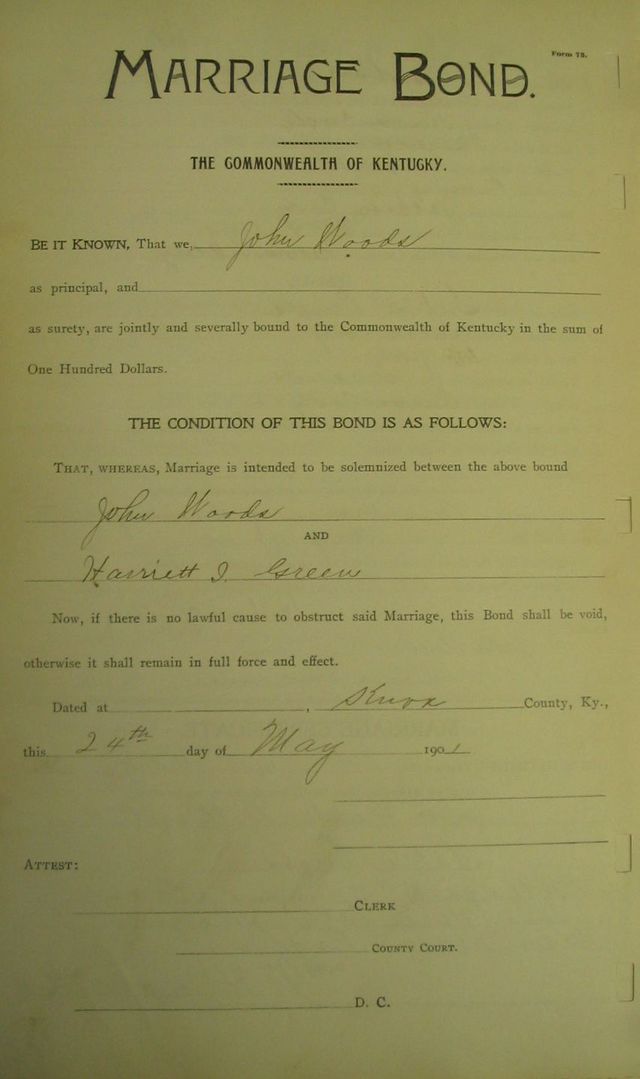 Form 78.
MARRIAGE BOND.
THE COMMONWEALTH OF KENTUCKY.
BE IT KNOWN, That we, John Woods
as principal, and
as surety, are jointly and severally bound to the Commonwealth of Kentucky in the sum of
One Hundred Dollars.
THE CONDITION OF THIS BOND IS AS FOLLOWS:
THAT, WHEREAS, Marriage is intended to be solemnized between the above bound
John Woods
AND
Harriett I. Green
Now, if there is no lawful cause to obstruct said Marriage, this Bond shall be void,
otherwise it shall remain in full force and effect.
Dated at , Knox County, Ky.,
this 24th day of May 1901
ATTEST:
CLERK
COUNTY COURT.
D. C.